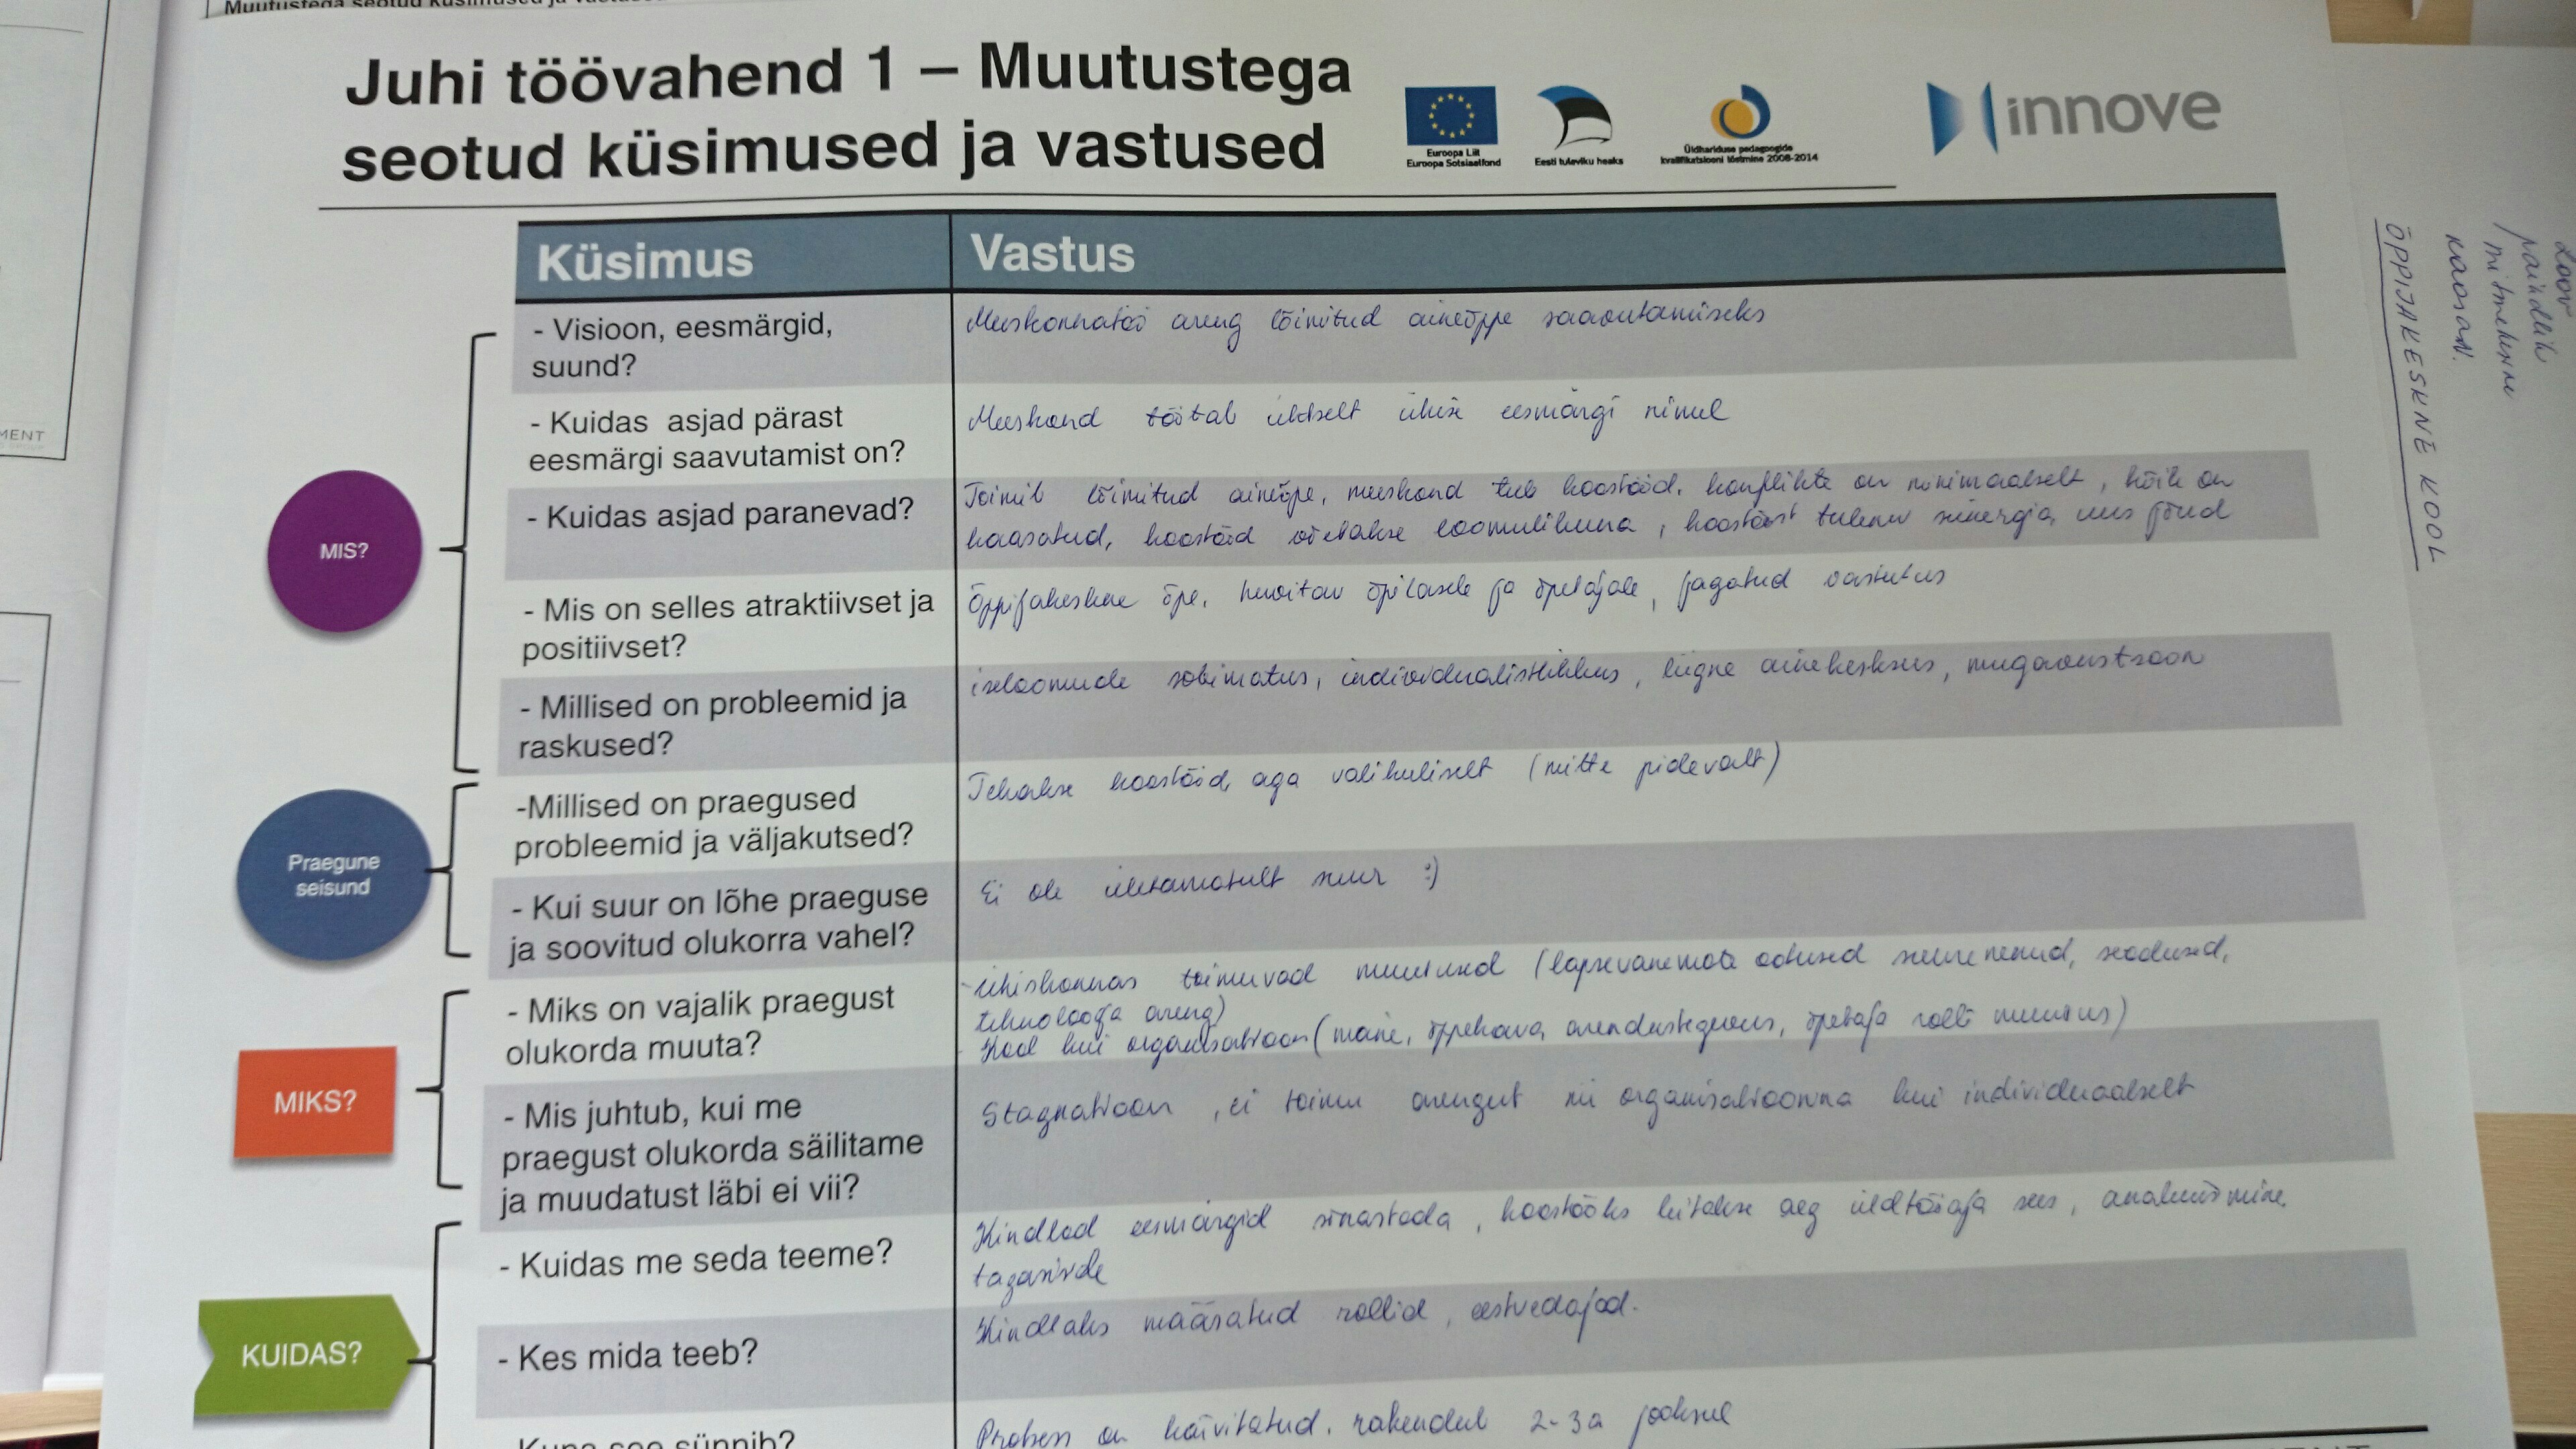 Muutustega seotud küsimused ja vastused
Juhi töövahend 1 – Muutustega
seotud küsimused ja vastused
Euroopa Liit
Euroopa Sotsiaalfond
Eesti tuleviku heaks
Üldhariduse pedagoogide
kvalifikatsiooni tõstmine 2008-2014
innove
Küsimus
Vastus
MIS?
- Visioon, eesmärgid,
suund?
Meeskonnatöö areng lõimitud aineõppe saavutamiseks
- Kuidas asjad pärast
eesmärgi saavutamist on?
Meeskond töötab ühtselt ühise eesmärgi nimel
- Kuidas asjad paranevad?
Toimib lõimitud aineõpe, meeskond teeb koostööd, konflikte on minimaalselt, kõik on
kaasatud, koostööd võetakse loomulikuna, koostööst tulenev sünergia, uus jõud
- Mis on selles atraktiivset ja
positiivset?
Õppijakeskne õpe, huvitav õpilasele ja õpetajale, jagatud vastutus
- Millised on probleemid ja
raskused?
iseloomude sobimatus, individualistlikkus, liigne ainekesksus, mugavustsoon
Praegune
seisund
-Millised on praegused
probleemid ja väljakutsed?
Tehakse koostööd, aga valikuliselt (mitte pidevalt)
- Kui suur on lõhe praeguse
ja soovitud olukorra vahel?
Ei ole ületamatult suur :)
MIKS?
- Miks on vajalik praegust
olukorda muuta?
- ühiskonnas toimuvad muutused (lapsevanemate ootused suurenenud, seadused,
tehnoloogia areng)
- Kool kui organisatsioon (maine, õppekava, arendustegevus, õpetaja rolli muutus)
- Mis juhtub, kui me
praegust olukorda säilitame
ja muudatust läbi ei vii?
Stagnatsioon, ei toimu arengut nii organisatsioonina kui individuaalselt
KUIDAS?
- Kuidas me seda teeme?
Kindlad eesmärgid sõnastada, koostööks leitakse aeg üldtööaja sees, analüüsimine,
tagasiside
- Kes mida teeb?
Kindlaks määratud rollid, eestvedajad.
- Kuna see sünnib?
Protsess on käivitatud, rakendub 2-3a jooksul
MENT
Loov
paindlik
mitmekesine
kaasav.
ÕPPIJAKESKNE KOOL